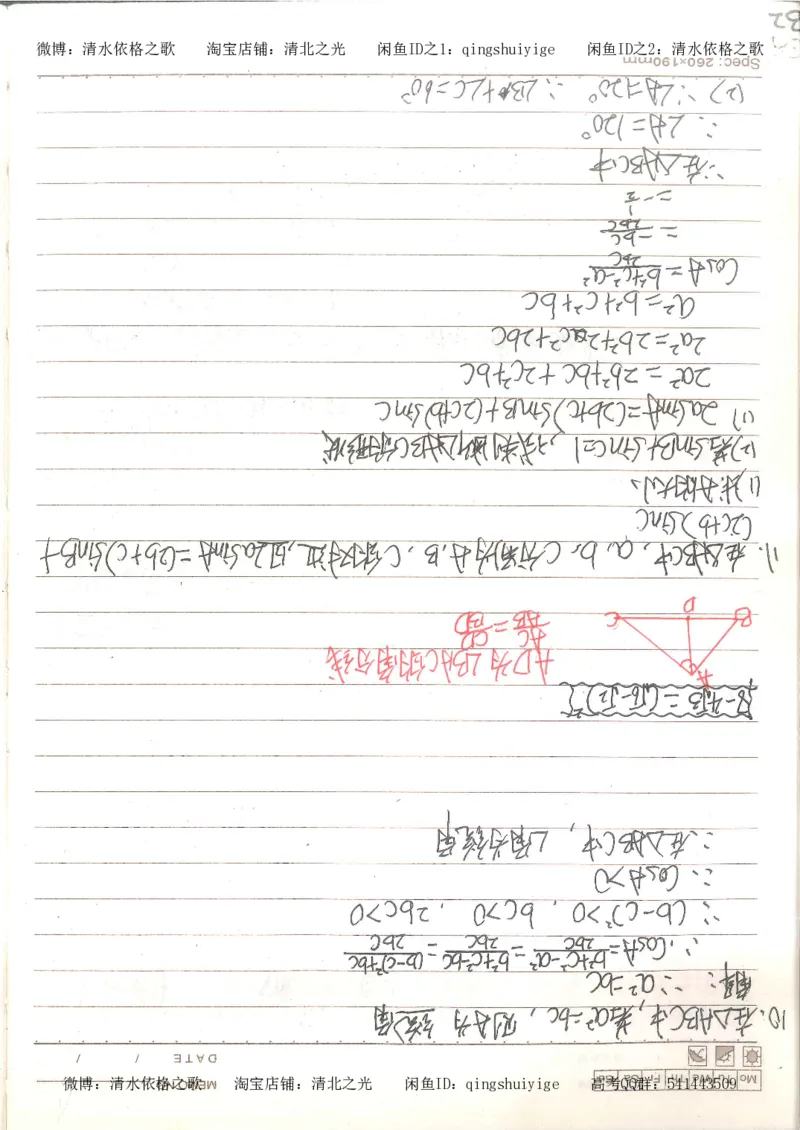 微博：清水依格之歌 淘宝店铺：清北之光 闲鱼ID之1：qingshuiyige 闲鱼ID之2：清水依格之歌
DATE / /
10. 在△ABC中, 若a²=bc, 则A为 锐 角
解: ∵a²=bc
∴CosA=b²+c²-a²/2bc=b²+c²-bc/2bc=(b-c)²+bc/2bc
∵(b-c)²>0, bc>0, 2bc>0
∴CosA>0
∴在△ABC中, ∠角为锐角
8-4√3=(√6-√2)²
A
B D C
AD为∠BAC的角分线
AC/AB=CD/BD
11. 在△ABC中, a、b、c分别为A、B、C的对边,且2asinA=(2b+c)sinB+
(2c+b)sinC
(1)求A的大小、
(2)若sinB+sinC=1,试判断△ABC的形状
(1) 2asinA=(2b+c)sinB+(2c+b)sinC
2a²=2b²+bc+2c²+bc
2a²=2b²+2c²+2bc
a²=b²+c²+bc
CosA=b²+c²-a²/2bc
=-bc/2bc
=-1/2
∵在△ABC中
∴∠A=120°
(2) ∵∠A=120° ∴∠B+∠C=60°
Spec: 260×190mm
微博：清水依格之歌 淘宝店铺：清北之光 闲鱼ID：qingshuiyige 高考QQ群：541443509